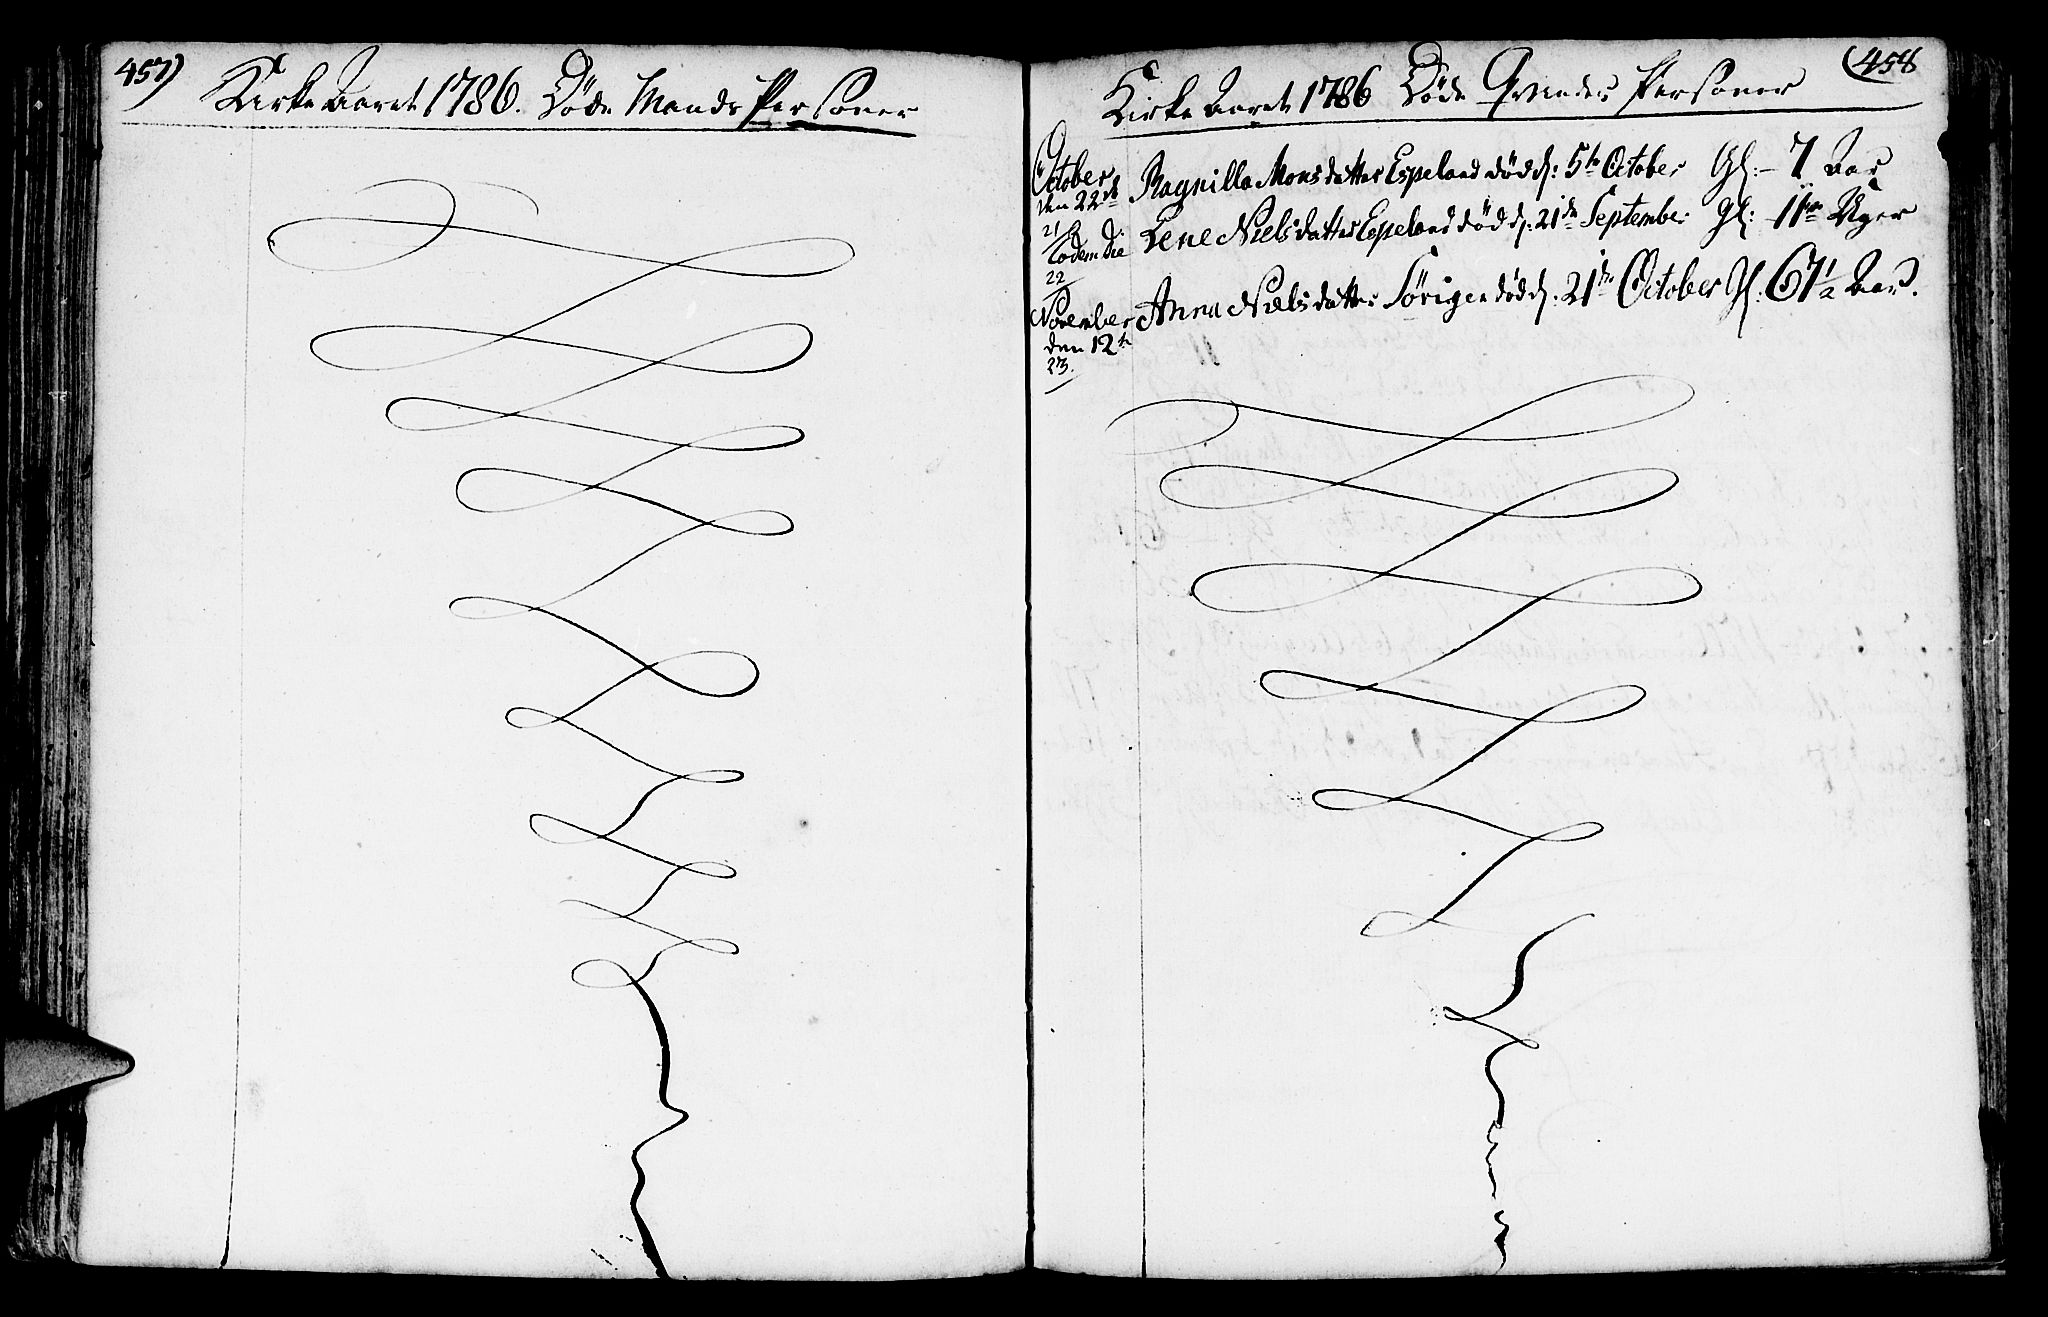 457)
Kirke Aaret 1786. Døde Mands Personer
458
Kirke Aaret 1786 Døde Qvindes Personer
October
den 22de
21
Ragnilla Monsdatter Espeland død d: 5te October Gl: 7 Aar
Eodem Die
22
Lene Nielsdatter Espeland død d: 21de September Gl: 11 Uger
November
den 12te
23.
Anna Nielsdatter Sørigen død d: 21de October Gl: 67 1/2 Aar.